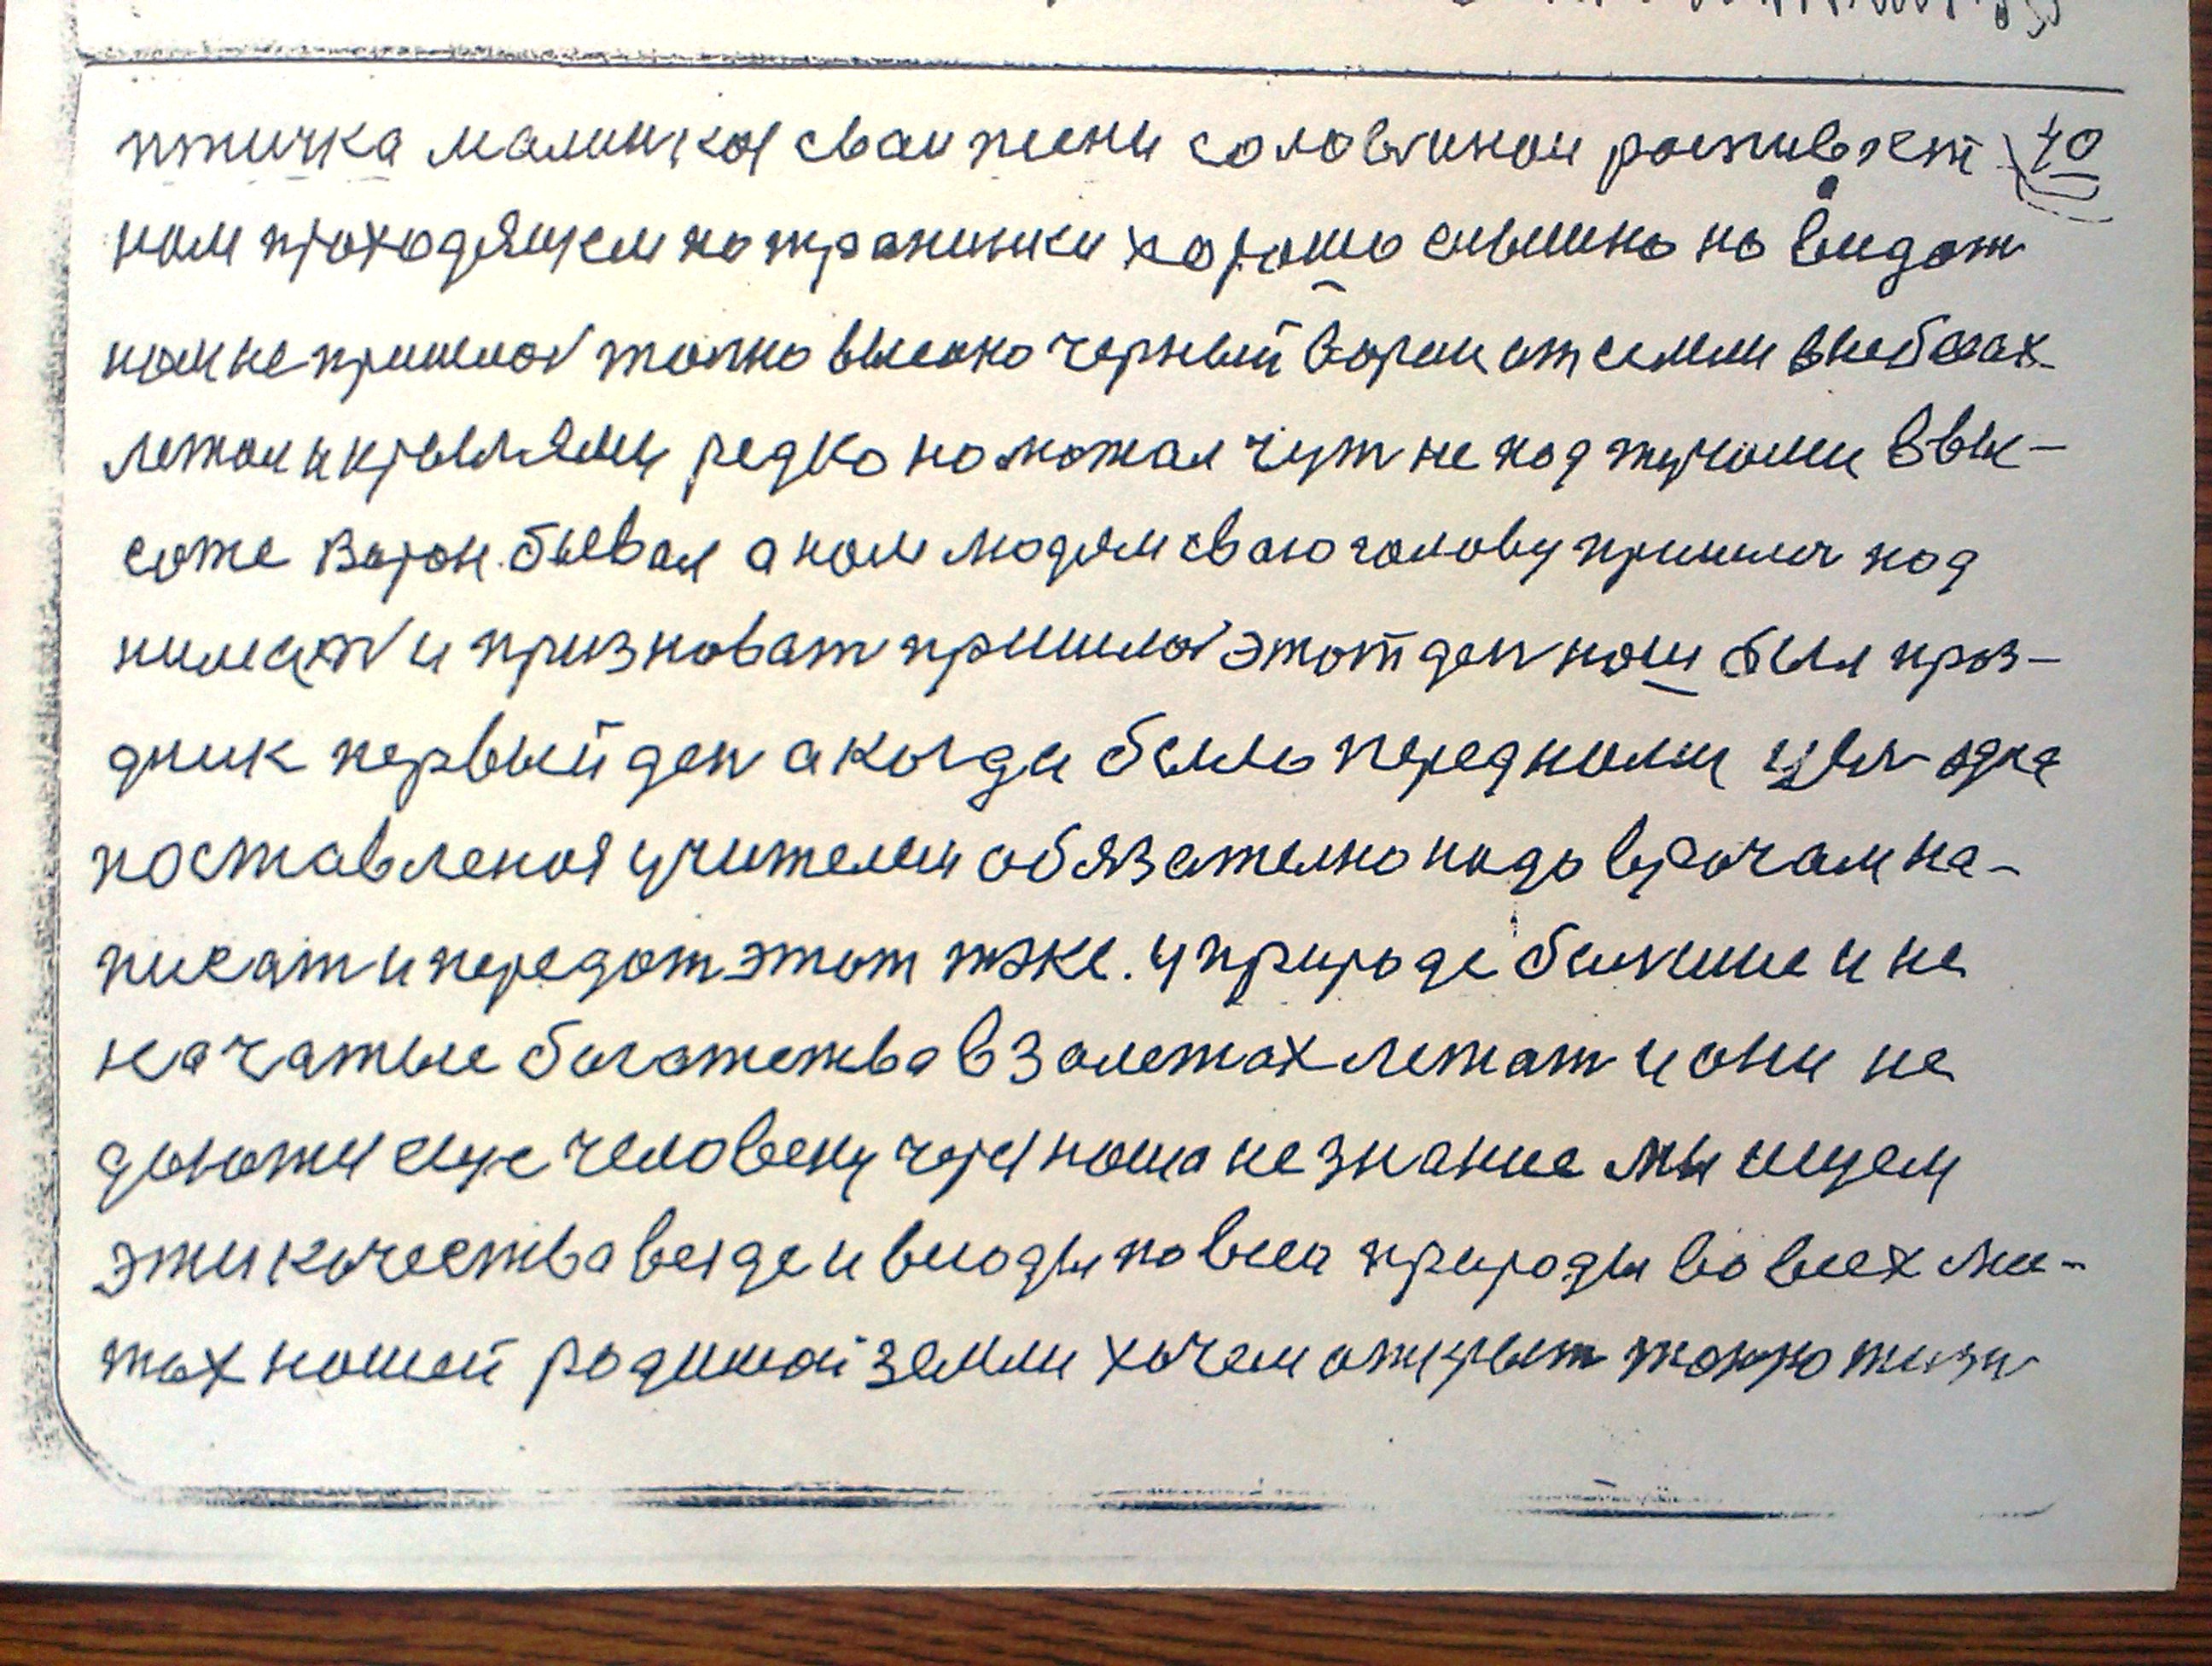 птичка малинкоя сваи песни соловиинои роспивает 40
нам проходящем на тропинки хорошо слышно но видат
нам не пришлося толко высоко черный ворон от семли в небесах
летал и крылями редко но махал чут не под тучами в вы-
соте ворон бывал а нам людям сваю голову пришлос под
нимат и признават пришлося этот ден наш был праз-
дник первый ден а когда было перед нами цель одна
поставленоя учителем обязателно надо врачам на-
писат и передат этот тоже. у природе болшие и не
начатые богатства в залетах летат и они не
даются еще человеку через наша незнание мы ищем
эти качества везде и в люды по всеи природы во всех ми-
тах нашей родимаи земли хочем открыт толко жизн